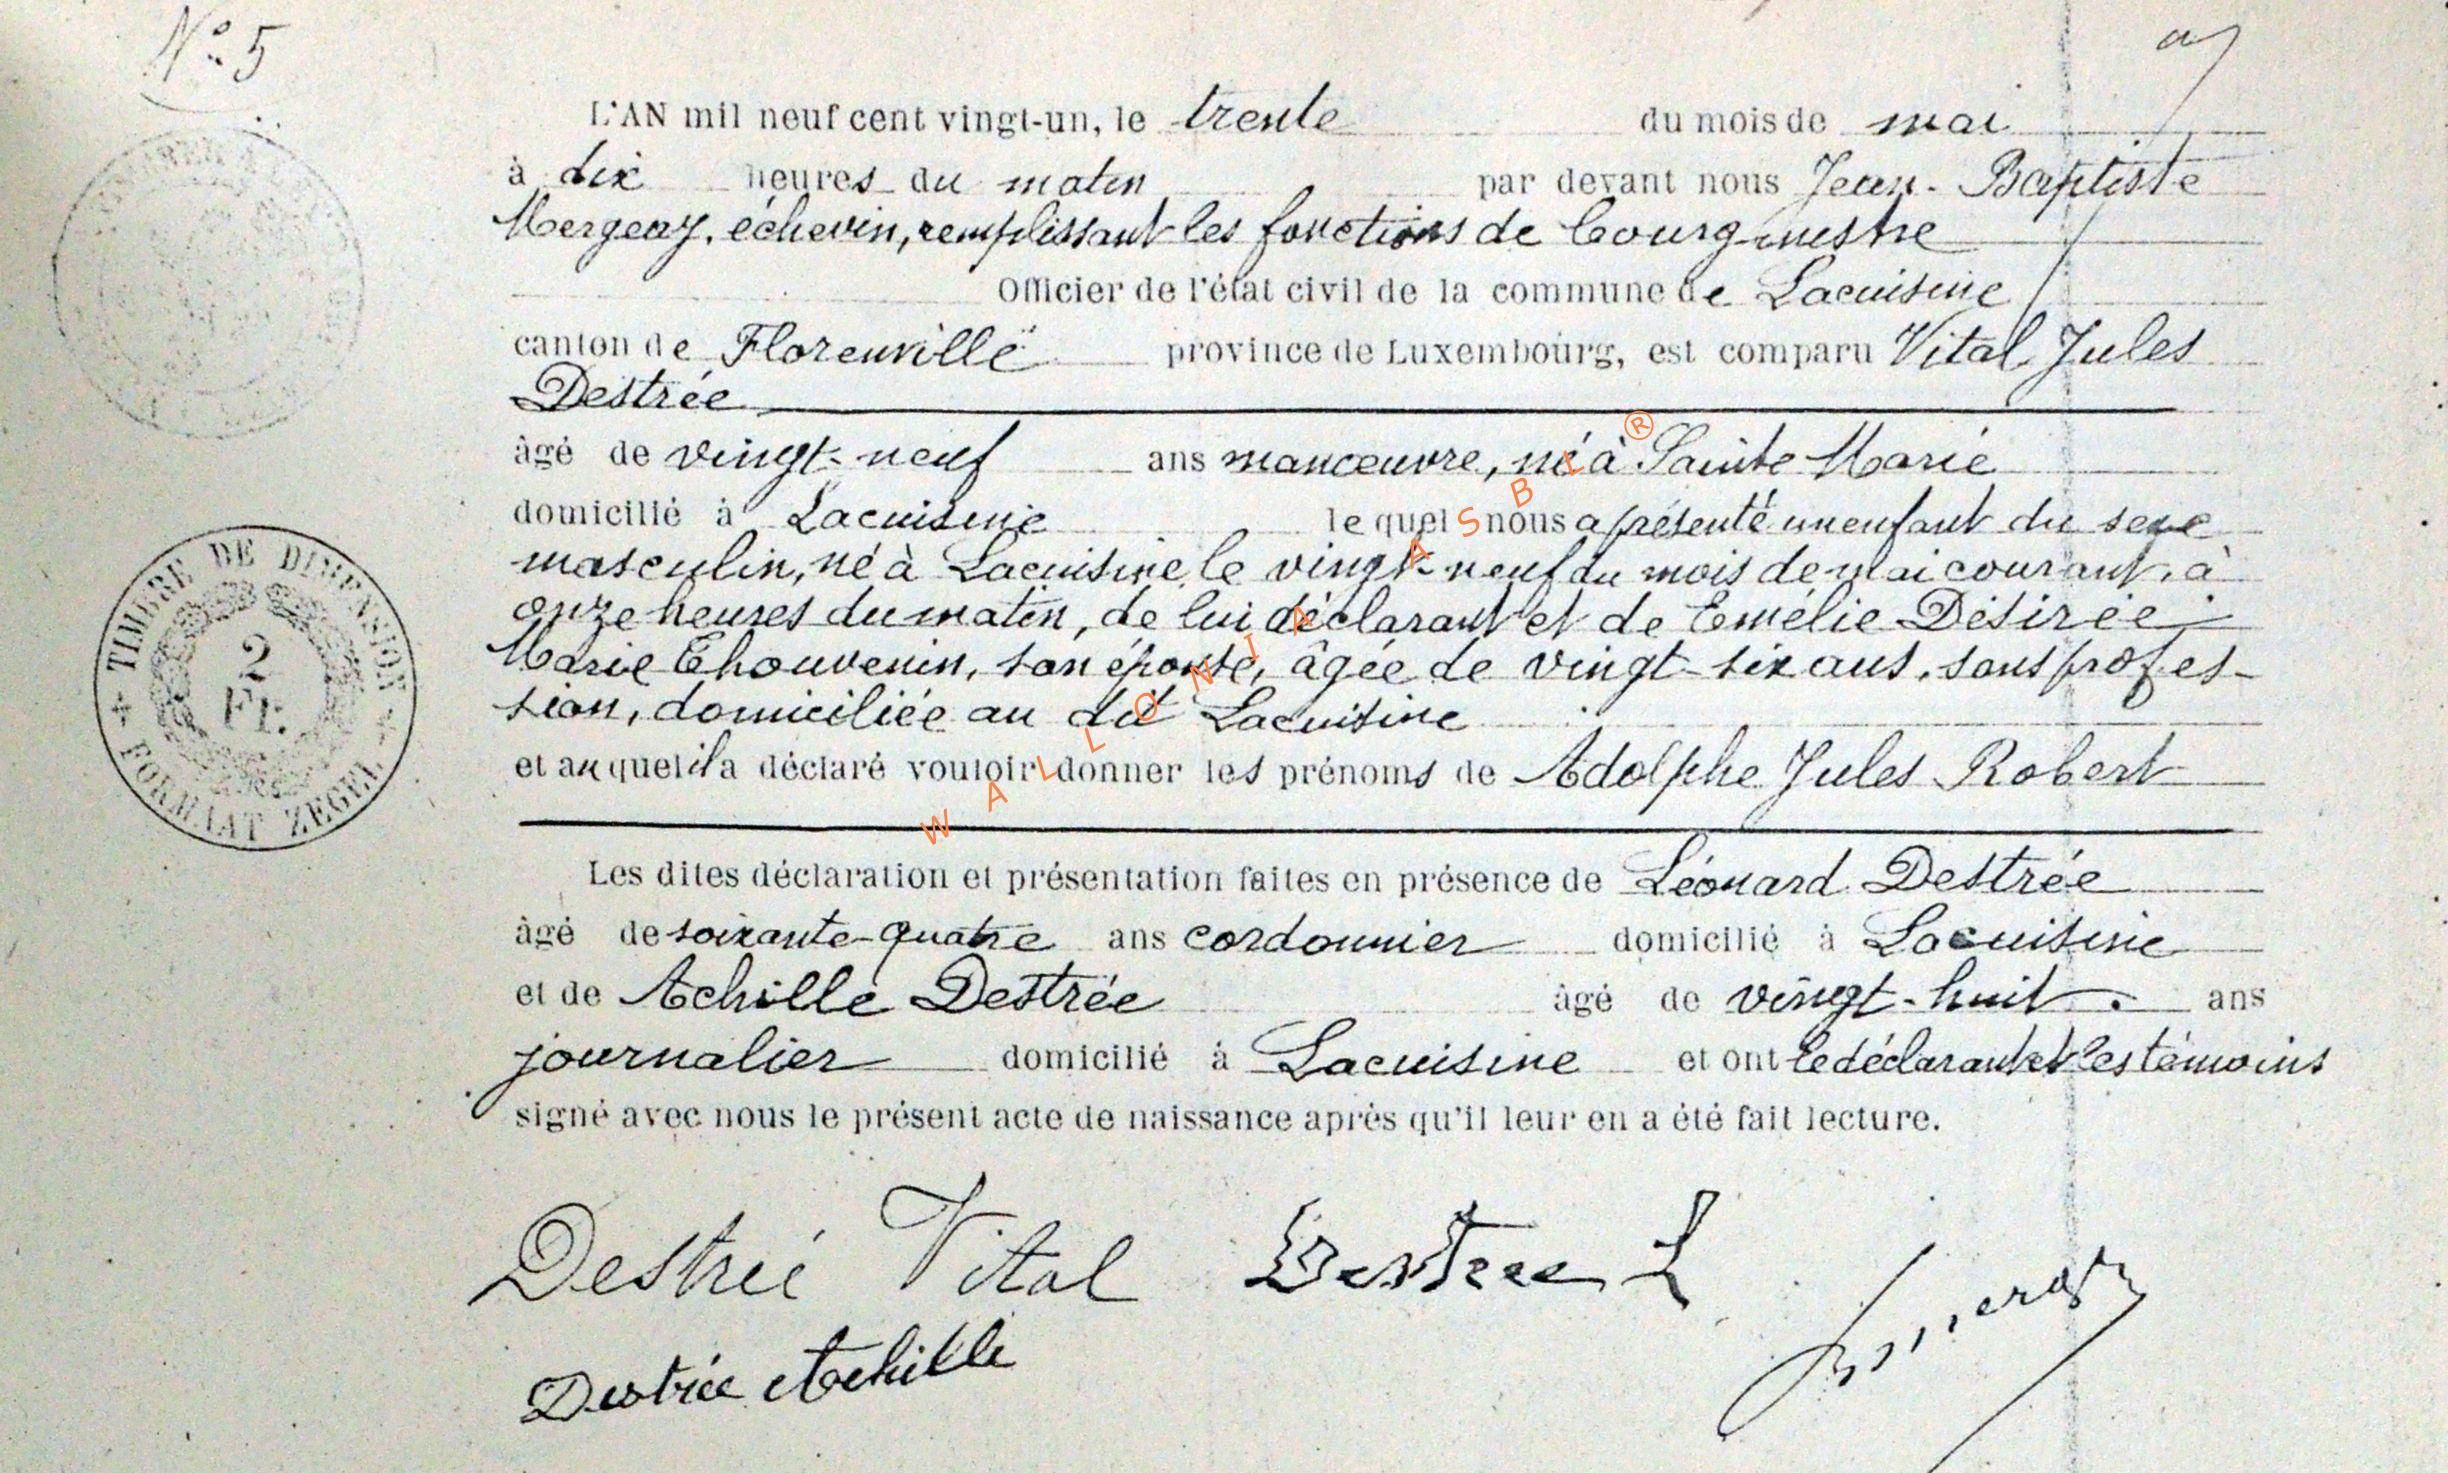 N° 5
L'AN mil neuf cent vingt-un, le trente du mois de mai
à dix heures du matin par devant nous Jean-Baptiste
Mergeay, échevin, remplissant les fonctions de bourgmestre
Officier de l'état civil de la commune de Lacuisine
canton de Florenville province de Luxembourg, est comparu Vital Jules
Destrée
âgé de vingt-neuf ans manœuvre, né à Sainte Marie
domicilié à Lacuisine lequel nous a présenté un enfant du sexe
masculin, né à Lacuisine, le vingt-neuf du mois de mai courant, à
onze heures du matin, de lui déclarant et de Emélie Désirée
Marie Thouvenin, son épouse, âgée de vingt-six ans, sans profes-
sion, domiciliée au dit Lacuisine
et auquel il a déclaré vouloir donner les prénoms de Adolphe Jules Robert
Les dites déclaration et présentation faites en présence de Léonard Destrée
âgé de soixante-quatre ans cordonnier domicilié à Lacuisine
et de Achille Destrée âgé de vingt-huit ans
journalier domicilié à Lacuisine et ont le déclarant et les témoins
signé avec nous le présent acte de naissance après qu'il leur en a été fait lecture.
Destrée Vital Destree L
Destrée Achille
TIMBRE DE DIMENSION
2
Fr.
FORMAAT ZEGEL
WALLONIA ASBL ®